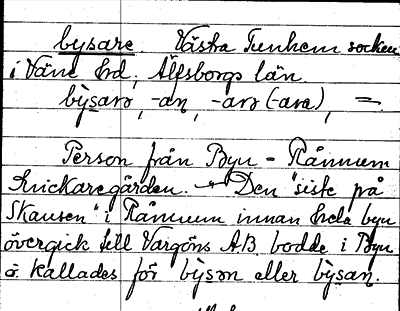 bysare. Västra Tunhem socken
i Väne hd, Älfsborgs län
bỳsarə, -an, -arə (-ara), =.
Person från Byn - Rånnum
Snickaregården. Den "siste på
Skansen" i Rånnum innan hela byn
övergick till Vargöns A.B. bodde i Byn
o. kallades för bỳsən eller bỳsan.